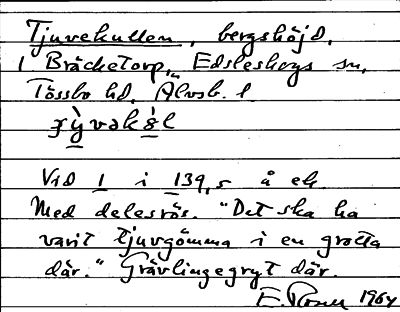 Tjuvekullen, bergshöjd,
1 Bräcketorp, Edsleskogs sn,
Tössbo hd, Älvsb. l
ɟỳvəkö̀l
Vid 1 i 139,5 å ek.
Med delesrös. "Det ska ha
varit tjuvgömma i en grotta
där." Grävlingegryt där.
E. 1964